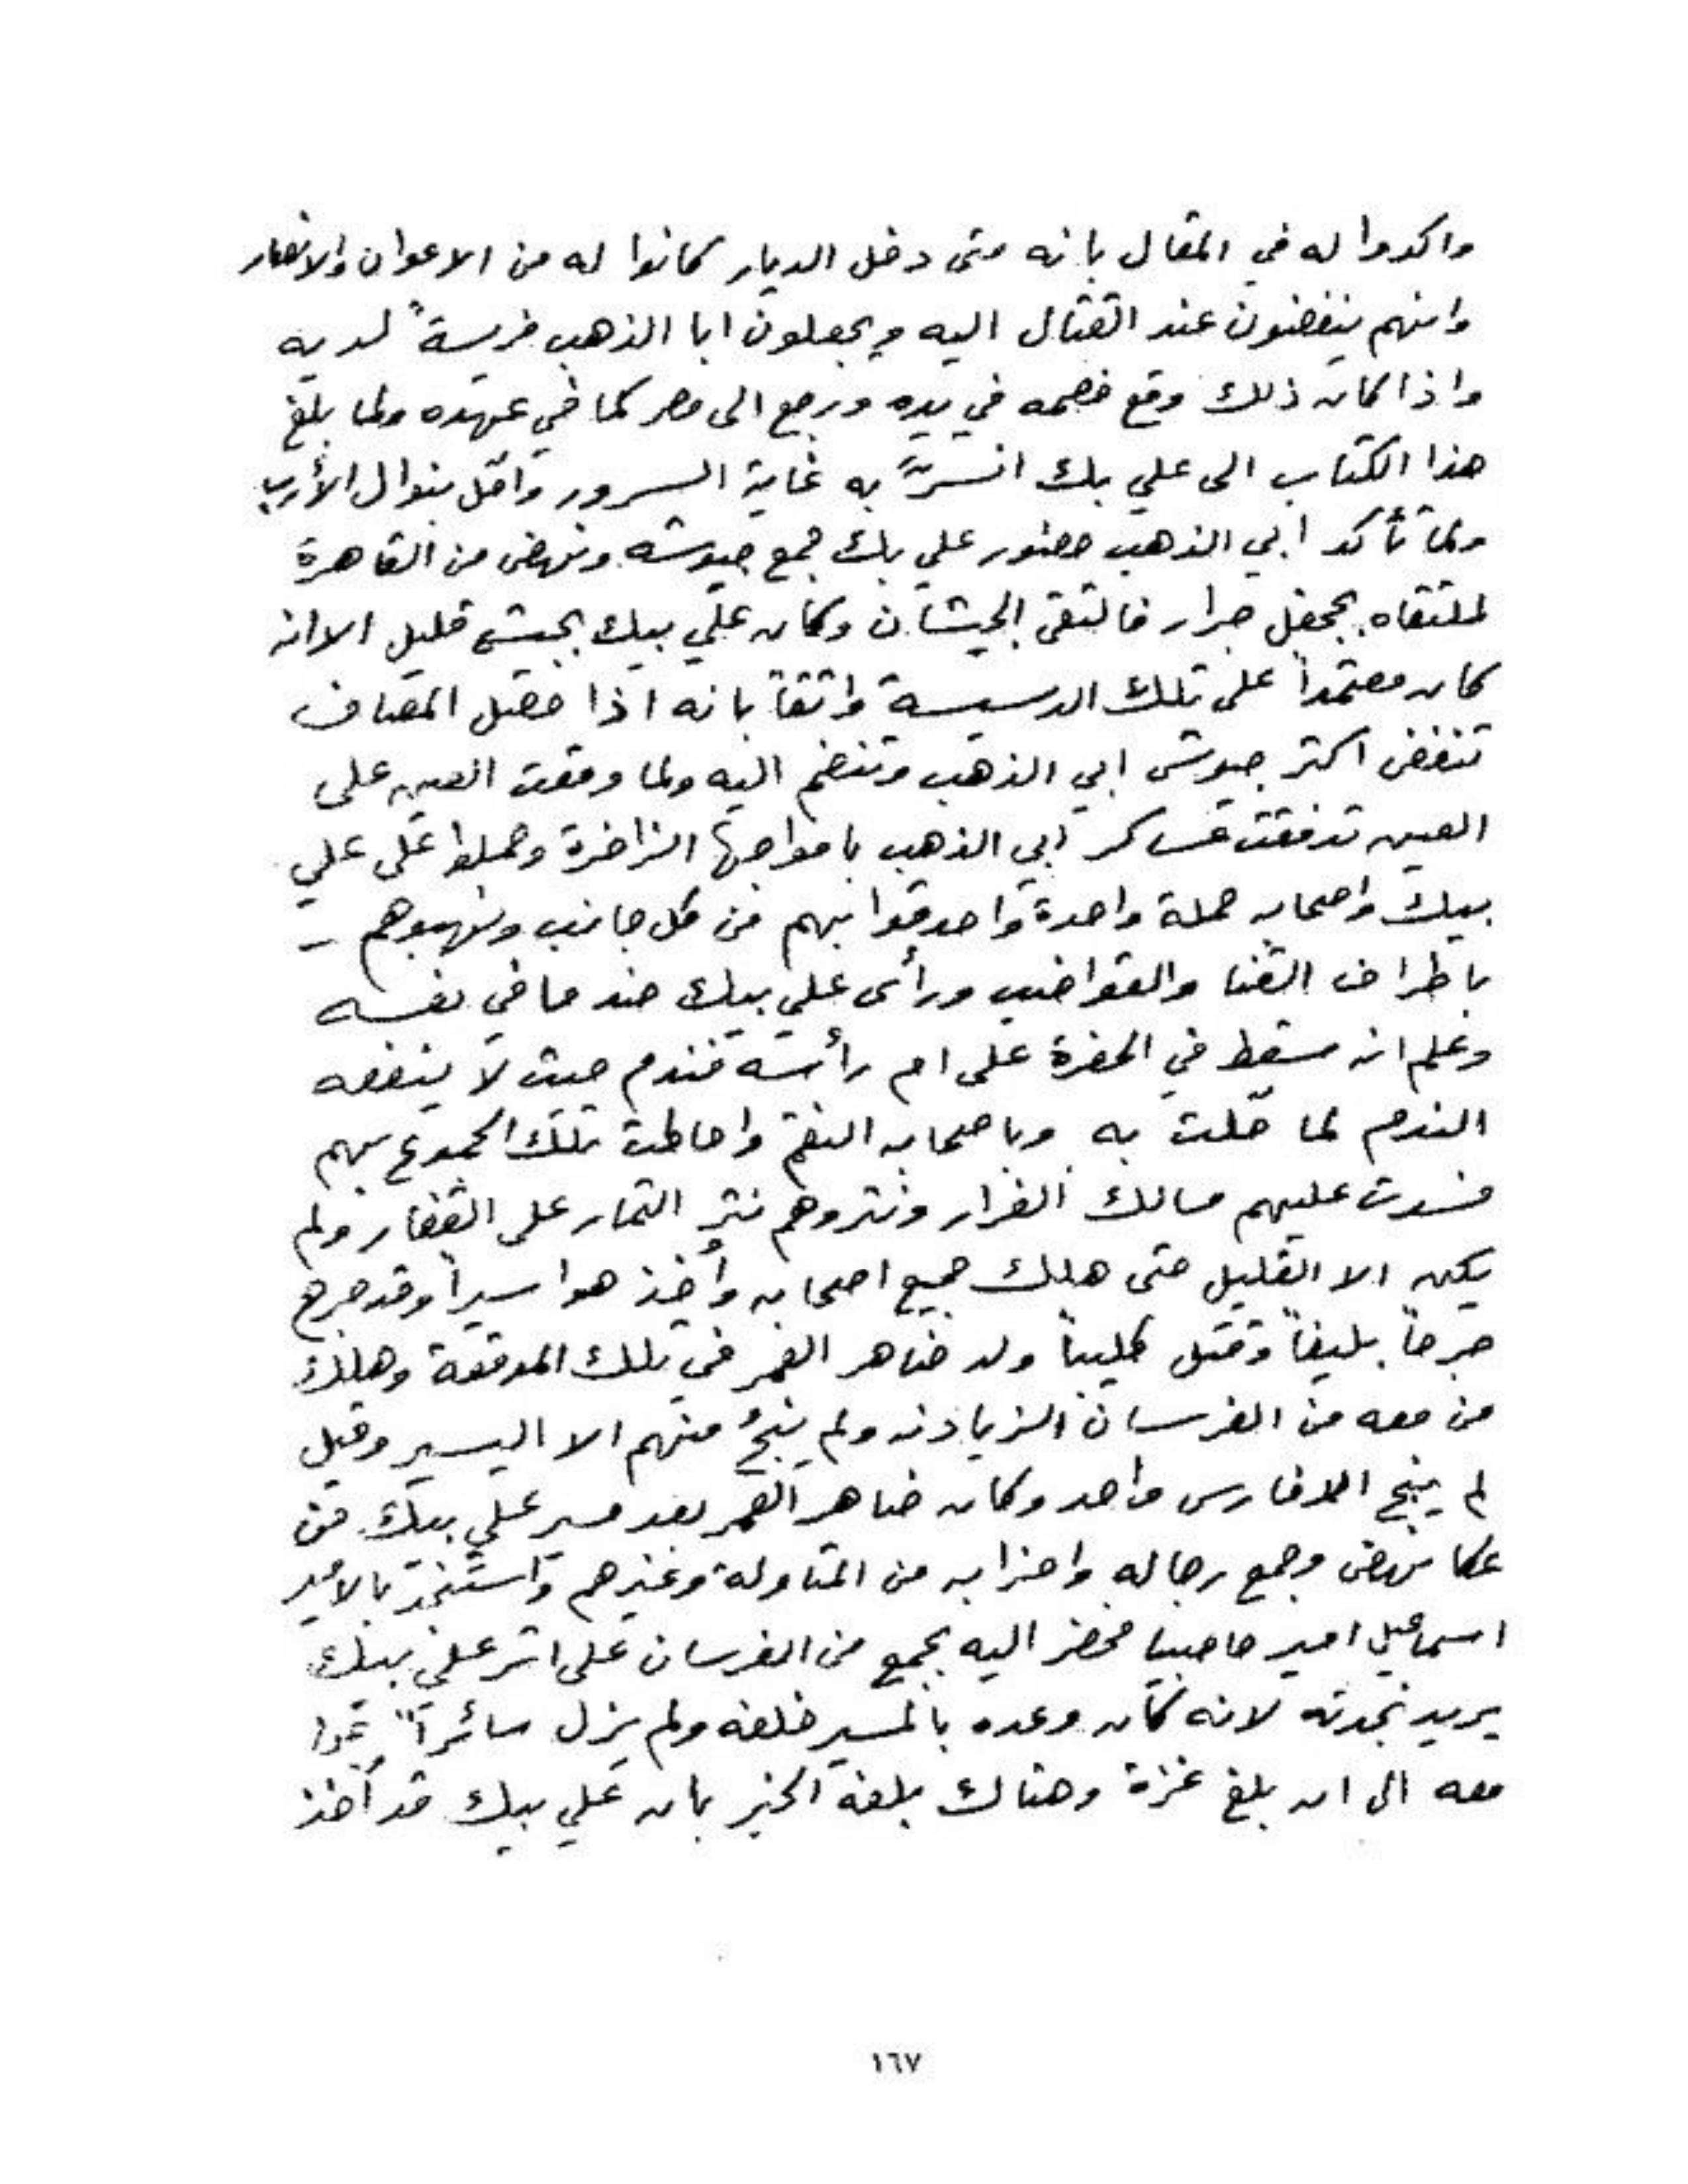 واكدوا له في المقال بانه متى دخل الديار كانوا له من الاعوان والانصار
وانهم ينفضون عند القتال اليه ويجعلون ابا الذهب فريسةً لديه
واذا كان ذلك وقع خصمه في يده ورجع الى مصر كما في عهده ولما بلغ
هذا الكتاب الى علي بك انسرَّ به غاية السرور وامّل بنوال الأرب
ولما تأكد ابي الذهب حضور علي بك جمع جيوشه ونهض من القاهرة
لملتقاه بجحفل جرار فالتقى الجيشان وكان علي بيك بجيش قليل الا انه
كان معتمداً على تلك الدسيسة واثقاً بانه اذا حصل المصاف
تنفض اكثر جيوش ابي الذهب وتنضم اليه ولما وقعت العين على
العين تدفقت عساكر ابي الذهب بامواجها الزاخرة وحملوا على علي
بيك واصحابه حملة واحدة واحدقوا بهم من كل جانب ونهبوهم
باطراف القنا والقواضب ورأى علي بيك ضد ما في نفسه
وعلم انه سقط في الحفرة على ام رأسه فندم حيث لا ينفعه
الندم لما حلّت به وباصحابه النقم واحاطت تلك الجموع بهم
فسدت عليهم مسالك الفرار ونثروهم نثر الثمار على القفار ولم
يكن الا القليل حتى هلك جميع اصحابه وأُخِذ هو اسيراً وقد جرح
جرحاً بليغاً وقتل كليباً ولد ضاهر العمر في تلك الموقعة وهلك
من معه من الفرسان الزيادنه ولم ينجُ منهم الا اليسير وقيل
لم ينج الا فارس واحد وكان ضاهر العمر بعد مسير علي بيك من
عكا نهض وجمع رجاله واحزابه من المتاوله وغيرهم واستنجد بالامير
اسماعيل امير حاصبيا فحضر اليه بجمع من الفرسان على اثر علي بيك
يريد نجدته لانه كان وعده بالمسير خلفه ولم يزل سائراً
معه الى ان بلغ غزة وهناك بلغه الخبر بان علي بيك قد أخذ
١٦٧